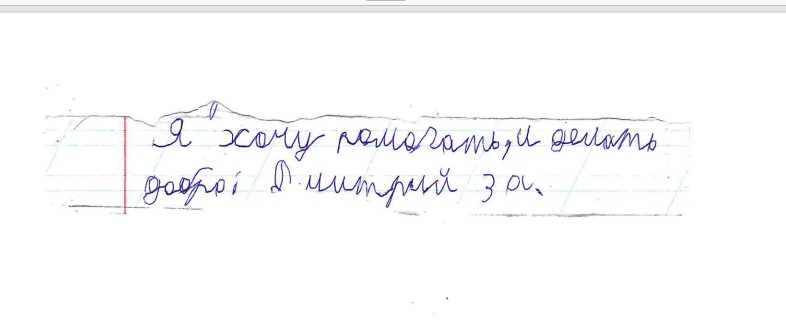 Я хочу помогать, и делать
добро; Дмитрий 3 а.